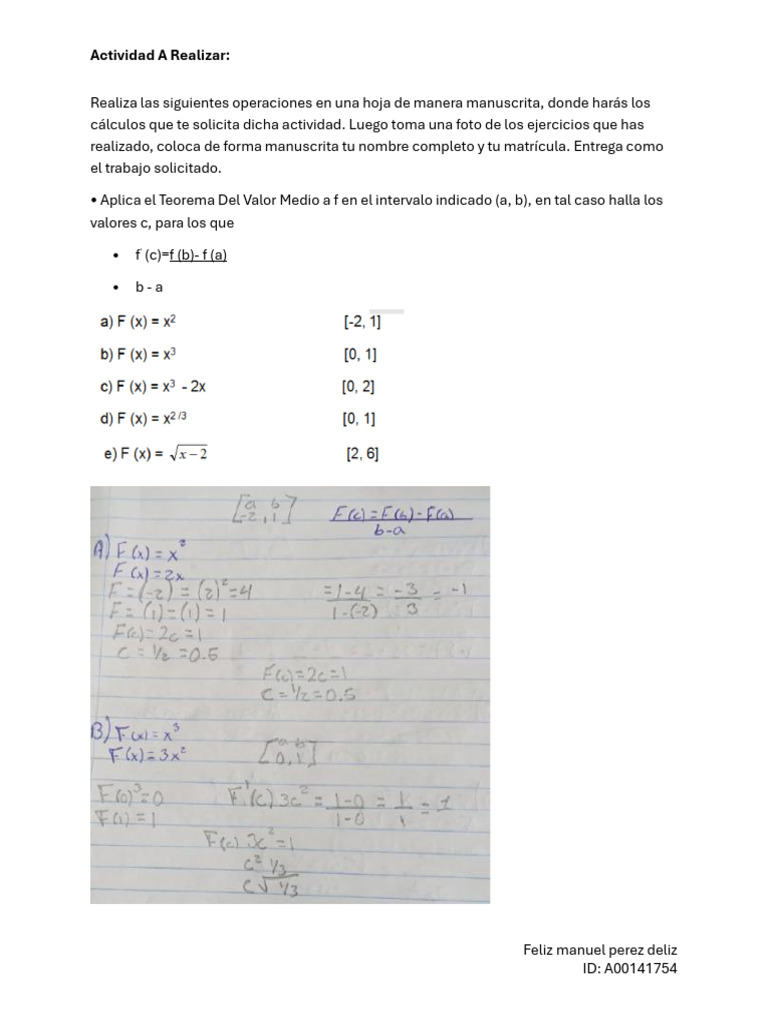 Actividad A Realizar:
Realiza las siguientes operaciones en una hoja de manera manuscrita, donde harás los
cálculos que te solicita dicha actividad. Luego toma una foto de los ejercicios que has
realizado, coloca de forma manuscrita tu nombre completo y tu matrícula. Entrega como
el trabajo solicitado.
• Aplica el Teorema Del Valor Medio a f en el intervalo indicado (a, b), en tal caso halla los
valores c, para los que
• f´(c)=f (b)- f (a)
• b - a
a) F (x) = x² [-2, 1]
b) F (x) = x³ [0, 1]
c) F (x) = x³ - 2x [0, 2]
d) F (x) = x^2/3 [0, 1]
e) F (x) = √x−2 [2, 6]
[a b
-2, 1]
F(c) = F(b) - F(a)
b-a
A) F(x) = x²
F(x) = 2x
F = (-2) = (2)² = 4 = 1-4 = -3 = -1
F = (1) = (1) = 1 1-(-2) 3
F(c) = 2c = 1
c = 1/2 = 0.5
F(c) = 2c = 1
c = 1/2 = 0.5
B) F(x) = x³
F(x) = 3x²
[a b
0, 1]
F(0)³ = 0 F'(c) 3c² = 1-0 = 1 = 1
F(1) = 1 1-0 1
F(c) 3c² = 1
c² 1/3
c √1/3
Feliz manuel perez deliz
ID: A00141754